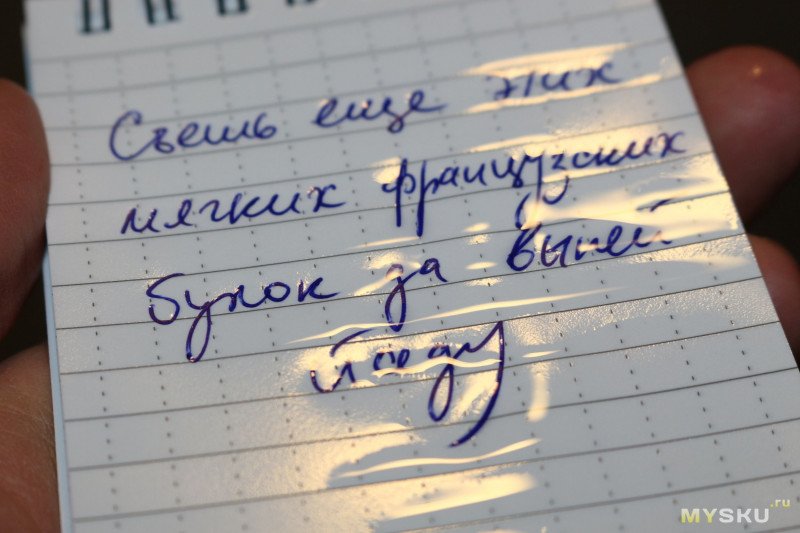 Съешь еще этих
мягких французских
булок да выпей
йоду
MYSKU.ru